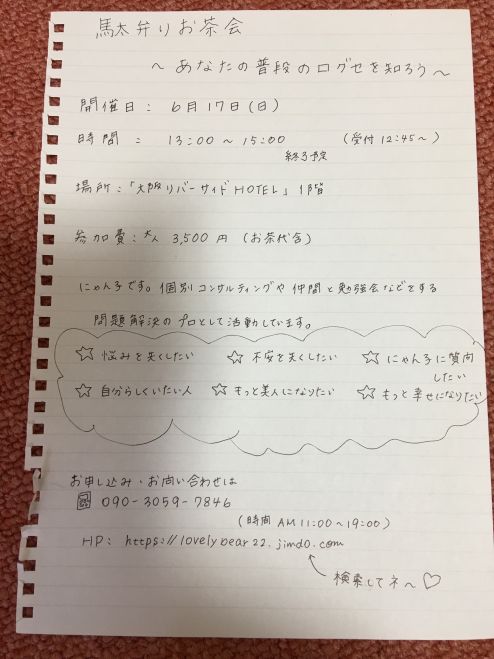 馬太弁りお茶会
～あなたの普段の口グセを知ろう～
開催日： 6月17日(日)
時間： 13:00～15:00 (受付12:45～)
終了予定
場所：「大阪リバーサイドHOTEL」1階
参加費：大人 3,500円 (お茶代含)
にゃん子です。個別コンサルティングや仲間と勉強会などをする
問題解決のプロとして活動しています。
☆ 悩みを失くしたい ☆ 不安を失くしたい ☆ にゃん子に質問
したい
☆ 自分らしくいたい人 ☆ もっと美人になりたい ☆ もっと幸せになりたい
お申し込み・お問い合わせは
090-3059-7846
(時間 AM11:00～19:00)
HP： https://lovelybear22.jimdo.com
検索してネ～♡